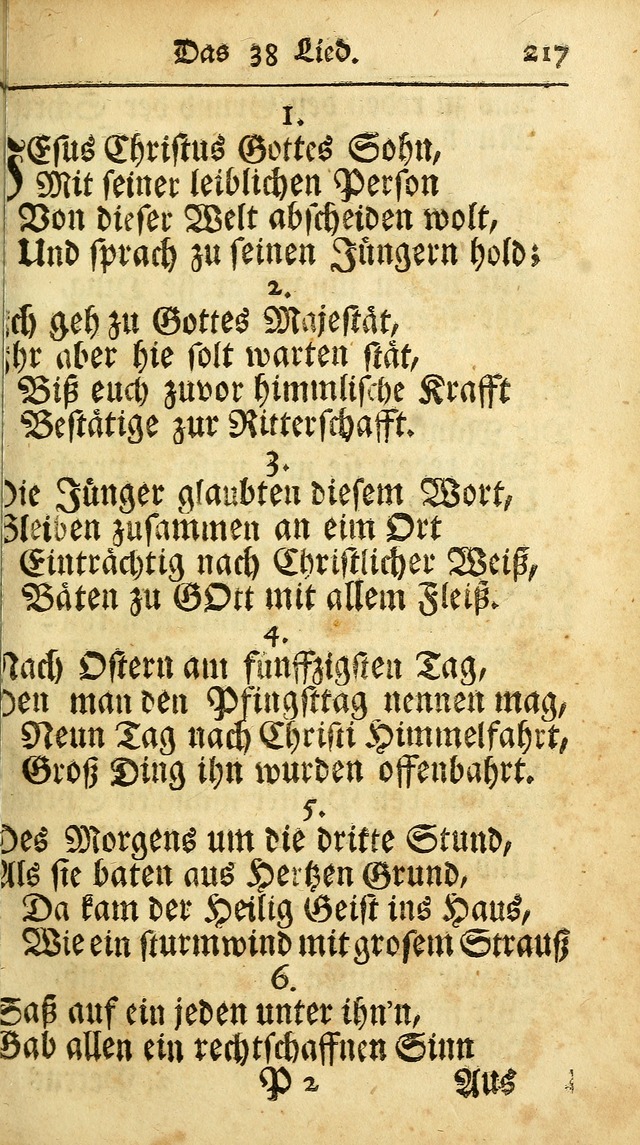 Das 38 Lied. 217
1.
JEsus Christus Gottes Sohn,
Mit seiner leiblichen Person
Von dieser Welt abscheiden wolt,
Und sprach zu seinen Jüngern hold;
2.
Ich geh zu Gottes Majestät,
Ihr aber hie solt warten stät,
Biß euch zuvor himmlische Krafft
Bestätige zur Ritterschafft.
3.
Die Jünger glaubten diesem Wort,
Bleiben zusammen an eim Ort
Einträchtig nach Christlicher Weiß,
Bäten zu GOtt mit allem Fleiß.
4.
Nach Ostern am fünffzigsten Tag,
Den man den Pfingsttag nennen mag,
Neun Tag nach Christi Himmelfahrt,
Groß Ding ihn wurden offenbahrt.
5.
Des Morgens um die dritte Stund,
Als sie baten aus Hertzen Grund,
Da kam der Heilig Geist ins Haus,
Wie ein sturmwind mit grosem Strauß
6.
Saß auf ein jeden unter ihn'n,
Gab allen ein rechtschaffnen Sinn
P 2 Aus